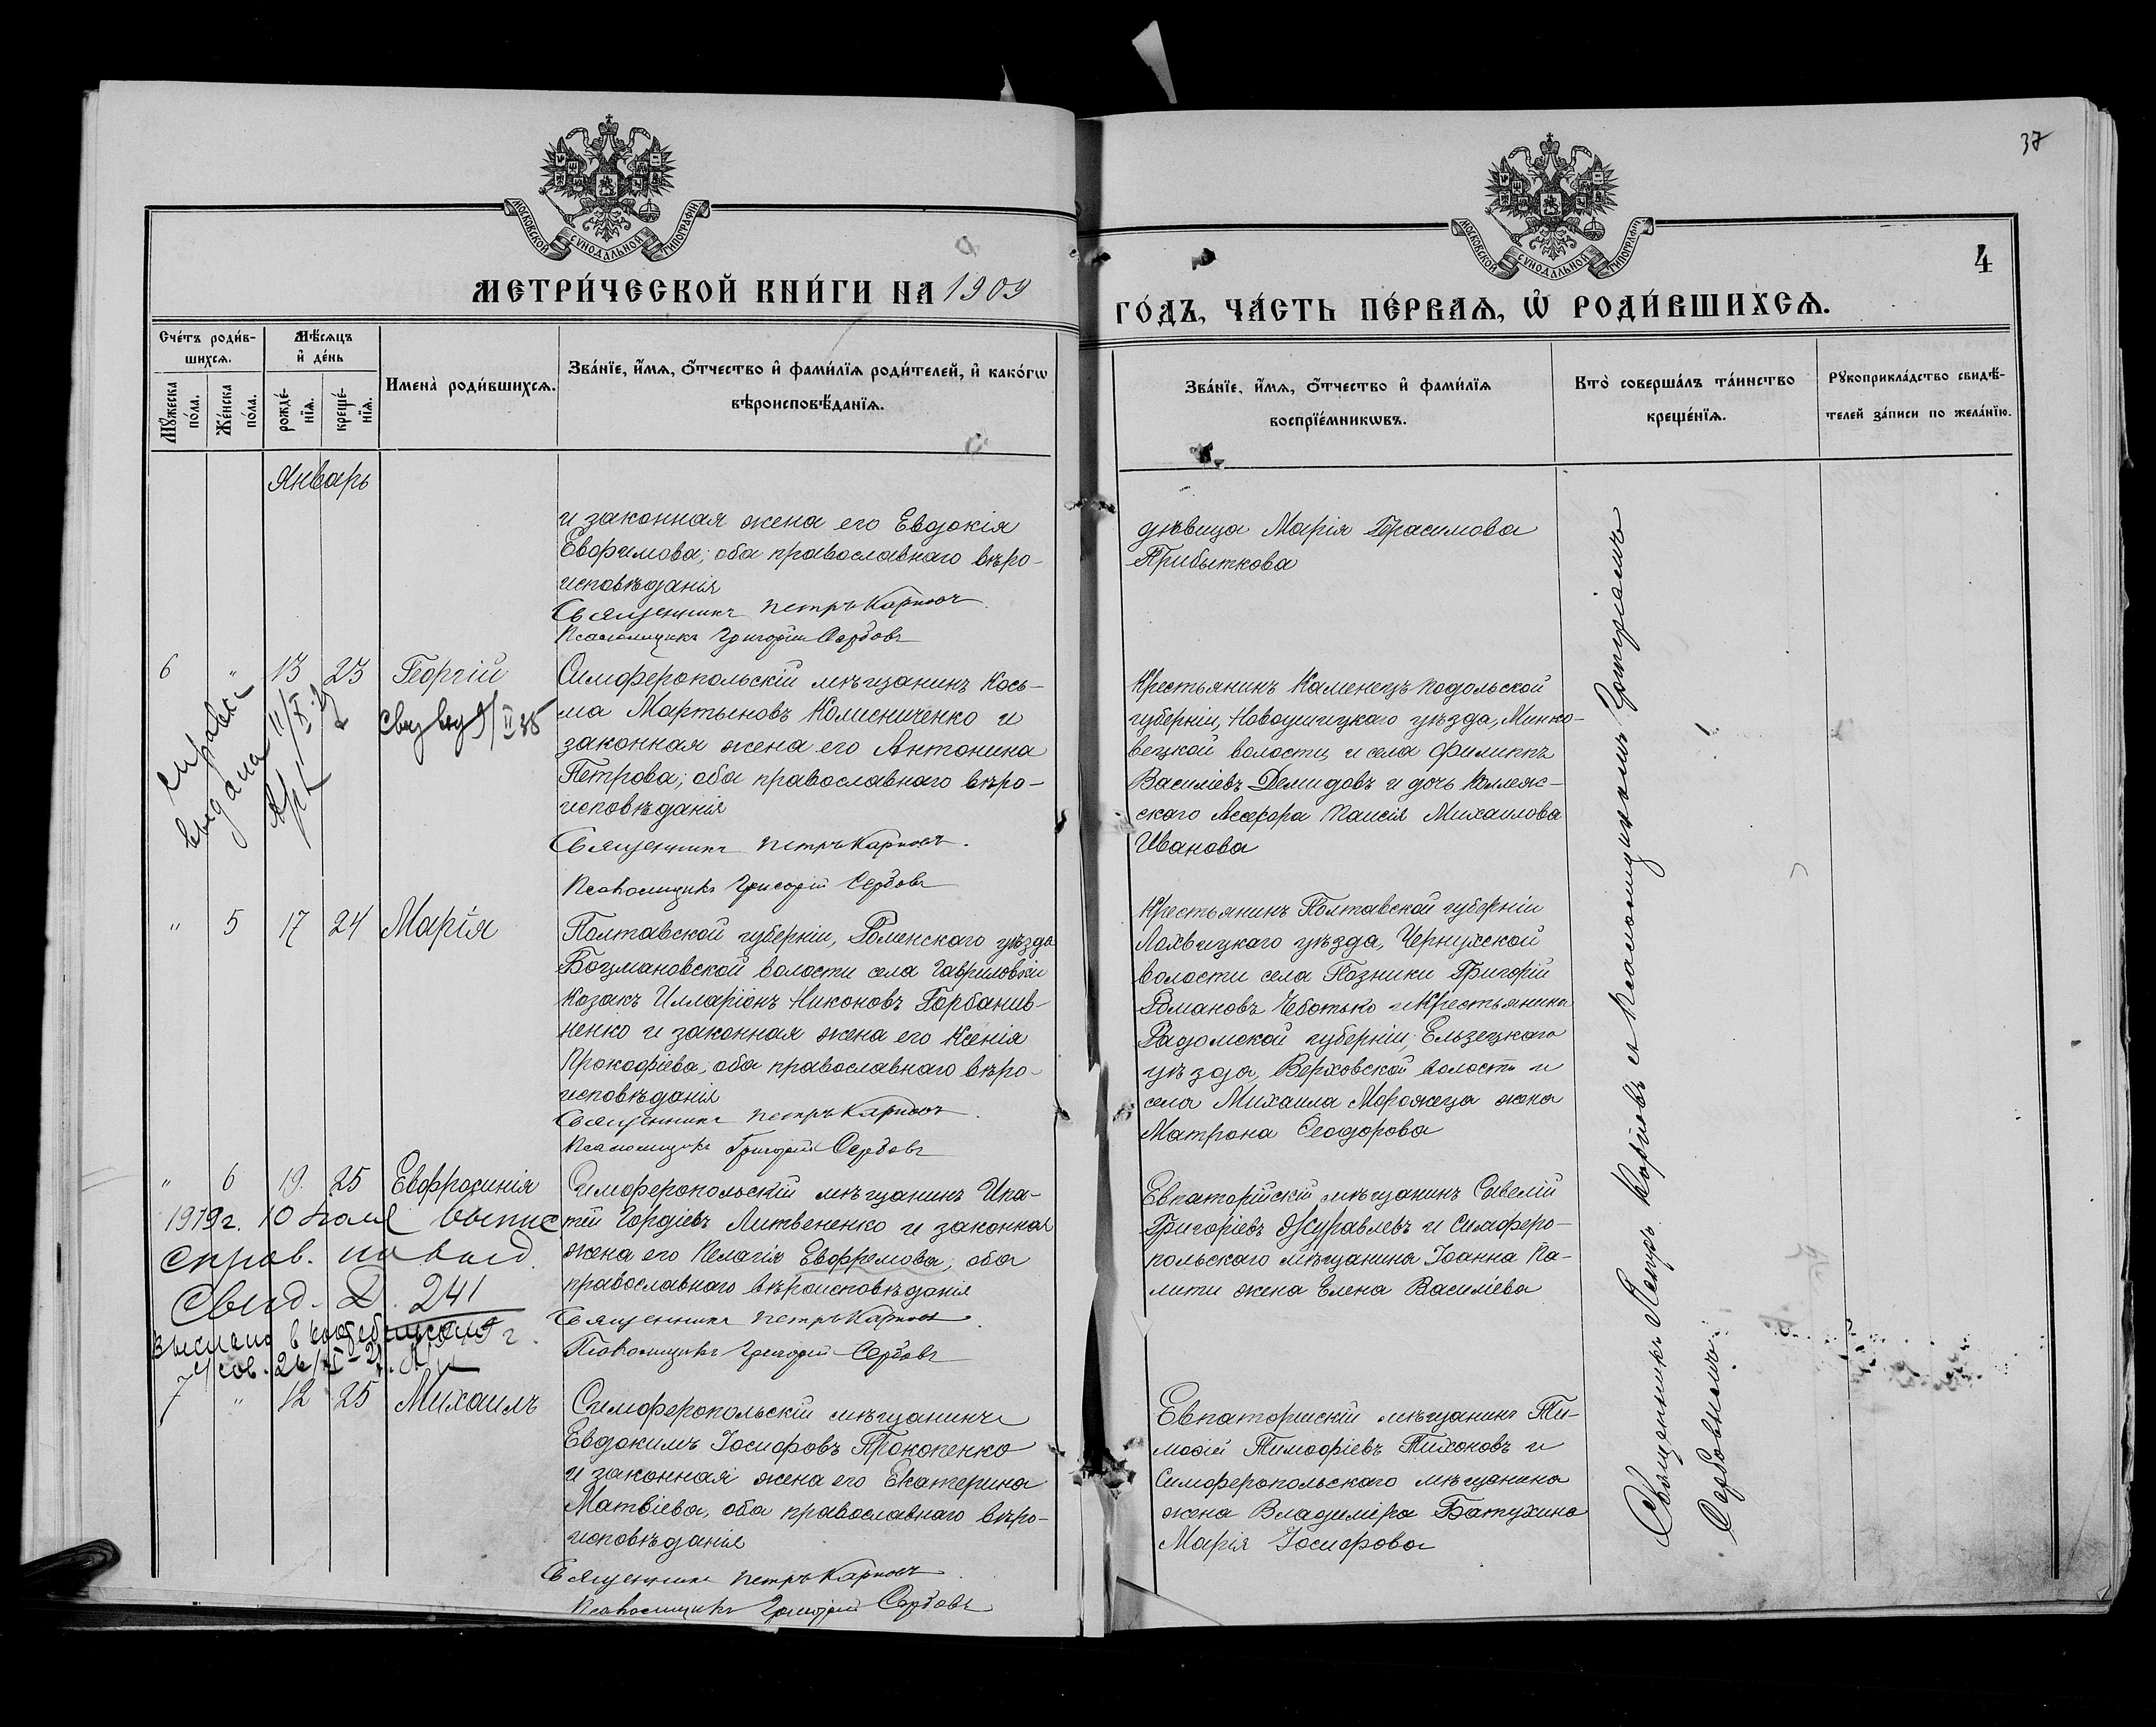 37
МОСКОВСКОЙ СѴНОДАЛЬНОЙ ТИПОГРАФІИ
МОСКОВСКОЙ СѴНОДАЛЬНОЙ ТИПОГРАФІИ
4
МЕТРИ́ЧЕСКОЙ КНИ́ГИ НА 1909
ГО́ДЪ, ЧА́СТЬ ПЕ́РВАѦ, Ѡ҆ РОДИ́ВШИХСѦ.
Сче́тъ роди́в-
шихсѧ.
Мꙋ́жеска по́ла.
Же́нска по́ла.
Мѣ́сѧцъ
и҆ де́нь
рожде́-
нїѧ.
креще́-
нїѧ.
Имена̀ роди́вшихсѧ.
Зва́нїе, и҆́мѧ, ѻ҆́тчество и҆ фами́лїѧ роди́телей, и҆ како́гѡ
вѣроисповѣ́данїѧ.
Зва́нїе, и҆́мѧ, ѻ҆́тчество и҆ фами́лїѧ
воспрїе́мникѡвъ.
Кто̀ соверша́лъ та́инство
креще́нїѧ.
Рꙋкоприкла́дство свидѣ́-
телей за́писи по жела́нїю.
Январь
и законная жена его Евдокія
Евфимова; оба православнаго вѣро-
исповѣданія
Священникъ Петръ Карповъ
Псаломщикъ Григорій Сербовъ
дѣвица Марія Герасимова
Прибыткова
6 " 13 23 Георгій
Симферопольскій мѣщанинъ Кось-
ма Мартыновъ Колесниченко и
законная жена его Антонина
Петрова; оба православнаго вѣро-
исповѣданія
Священникъ Петръ Карповъ
Псаломщикъ Григорій Сербовъ
справка
выдана 11/X
Крестьянинъ Каменецъ Подольской
губерніи, Новоушицкаго уѣзда, Минко-
вецкой волости и села Филиппъ
Василіевъ Демидовъ и дочь Коллеж-
скаго Асессора Паисія Михаилова
Иванова
" 5 17 24 Марія
Полтавской губерніи, Роменскаго уѣзда
Боцмановской волости села Гавриловки
Козакъ Илларіонъ Никоновъ Горбанив-
ненко и законная жена его Ксенія
Прокофіева; оба православнаго вѣро-
исповѣданія
Священникъ Петръ Карповъ
Псаломщикъ Григорій Сербовъ
Крестьянинъ Полтавской губерніи
Лохвицкаго уѣзда, Чернухской
волости села Позники Григорій
Романовъ Чеботько и Крестьянина
Радомской губерніи, Ельзецкаго
уѣзда, Верховской волости и
села Михаила Морожеца жена
Матрона Ѳеодорова
" 6 19 25 Евфрозинія
Симферопольскій мѣщанинъ Ипа-
тій Гордіевъ Литвененко и законная
жена его Пелагія Евфремова; оба
православнаго вѣроисповѣданія
Священникъ Петръ Карповъ
Псаломщикъ Григорій Сербовъ
1919г. 10
справ.
Свид. 241
Евпаторійскій мѣщанинъ Савелій
Григоріевъ Журавлевъ и Симферо-
польскаго мѣщанина Іоанна Па-
лити жена Елена Василіева
7 " 12 25 Михаилъ
Симферопольскій мѣщанинъ
Евдокимъ Іосифовъ Прокопенко
и законная жена его Екатерина
Матвіева, оба православнаго вѣро-
исповѣданія
Священникъ Петръ Карповъ
Псаломщикъ Григорій Сербовъ
Евпаторійскій мѣщанинъ Ти-
мофій Тимофіевъ Тихоновъ и
Симферопольскаго мѣщанина
жена Владиміра Батухина
Марія Іосифова
Священникъ Петръ Карповъ съ Псаломщикомъ Григоріемъ
Сербовымъ